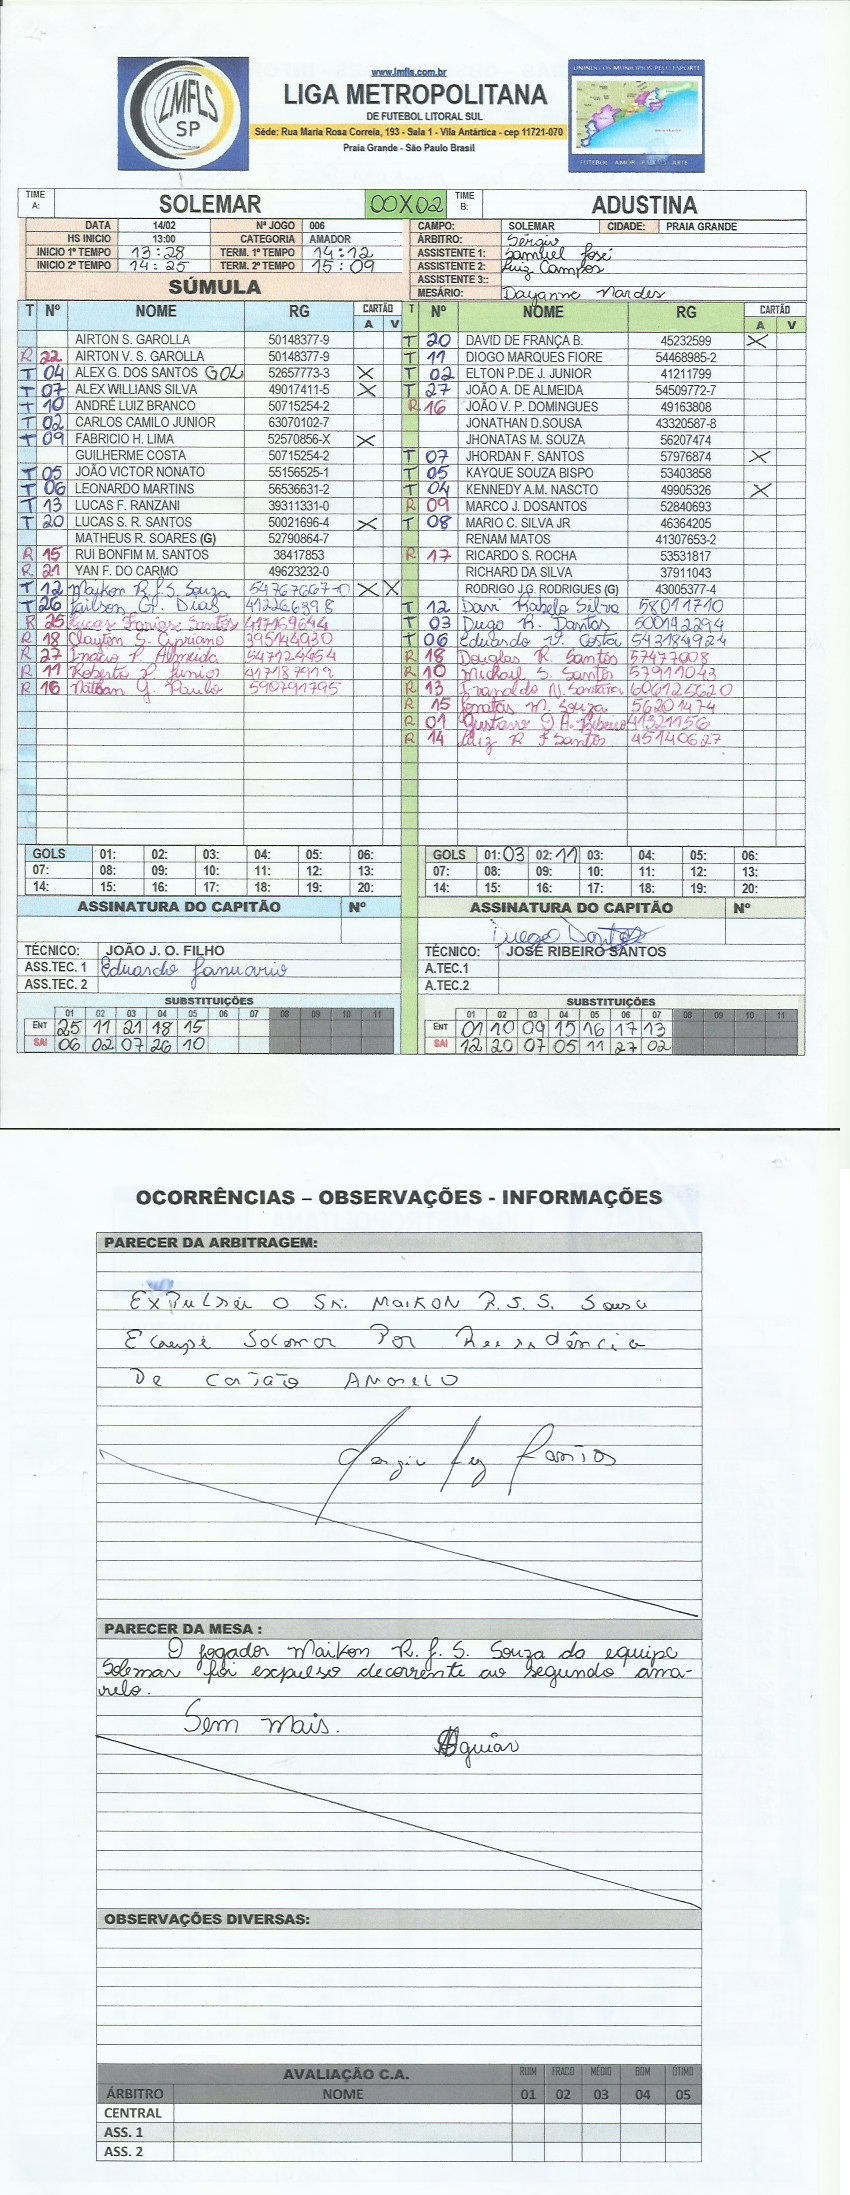 LMFLS
SP
www.lmfls.com.br
LIGA METROPOLITANA
DE FUTEBOL LITORAL SUL
Séde: Rua Maria Rosa Correia, 193 - Sala 1 - Vila Antártica - cep 11721-070
Praia Grande - São Paulo Brasil
UNINDO OS MUNICIPIOS PELO ESPORTE
TIME A: SOLEMAR 00X02 TIME B: ADUSTINA
DATA 14/02 Nº JOGO 006 CAMPO: SOLEMAR CIDADE: PRAIA GRANDE
HS INICIO 13:00 CATEGORIA AMADOR ÁRBITRO: Sérgio
INICIO 1º TEMPO 13:28 TERM. 1º TEMPO 14:12 ASSISTENTE 1: Samuel José
INICIO 2º TEMPO 14:25 TERM. 2º TEMPO 15:09 ASSISTENTE 2: Luiz Campos
ASSISTENTE 3::
SÚMULA MESÁRIO: Dayanne
T Nº NOME RG CARTÃO A V T Nº NOME RG CARTÃO A V
AIRTON S. GAROLLA 50148377-9 T 20 DAVID DE FRANÇA B. 45232599 X
R 22 AIRTON V. S. GAROLLA 50148377-9 T 11 DIOGO MARQUES FIORE 54468985-2
T 04 ALEX G. DOS SANTOS GOL 52657773-3 X T 02 ELTON P.DE J. JUNIOR 41211799
T 07 ALEX WILLIANS SILVA 49017411-5 X T 27 JOÃO A. DE ALMEIDA 54509772-7
T 10 ANDRÉ LUIZ BRANCO 50715254-2 R 16 JOÃO V. P. DOMINGUES 49163808
T 02 CARLOS CAMILO JUNIOR 63070102-7 JONATHAN D.SOUSA 43320587-8
T 09 FABRICIO H. LIMA 52570856-X X JHONATAS M. SOUZA 56207474
GUILHERME COSTA 50715254-2 T 07 JHORDAN F. SANTOS 57976874 X
T 05 JOÃO VICTOR NONATO 55156525-1 T 05 KAYQUE SOUZA BISPO 53403858
T 06 LEONARDO MARTINS 56536631-2 T 04 KENNEDY A.M. NASCTO 49905326 X
T 13 LUCAS F. RANZANI 39311331-0 R 09 MARCO J. DOSANTOS 52840693
T 20 LUCAS S. R. SANTOS 50021696-4 X T 08 MARIO C. SILVA JR 46364205
MATHEUS R. SOARES (G) 52790864-7 RENAM MATOS 41307653-2
R 15 RUI BONFIM M. SANTOS 38417853 R 17 RICARDO S. ROCHA 53531817
R 21 YAN F. DO CARMO 49623232-0 RICHARD DA SILVA 37911043
T 12 Maykon R.J.S. Souza 54767667-0 X X RODRIGO J.G. RODRIGUES (G) 43005377-4
T 26 Dias 412266398 T 12 Davi Rabelo Silva 58011710
R 25 Lucas Farias Santos 417169644 T 03 Diego R. Dantas 500142294
R 18 Clayton S. Cipriano 395144930 T 06 Eduardo V. Costa 543184924
R 27 Almeida 547124454 R 18 Douglas R. Santos 57477008
R 11 Roberto Junior 417187919 R 10 Michael S. Santos 57911043
R 16 Nathan G. Paulo 590791795 R 13 Ivanaldo N. Santana 606125620
R 15 Jonatas M. Souza 56201474
R 01 Gustavo Ribeiro 41321156
R 14 Luiz R F Santos 45140627
GOLS 01: 02: 03: 04: 05: 06: GOLS 01: 03 02: 11 03: 04: 05: 06:
07: 08: 09: 10: 11: 12: 13: 07: 08: 09: 10: 11: 12: 13:
14: 15: 16: 17: 18: 19: 20: 14: 15: 16: 17: 18: 19: 20:
ASSINATURA DO CAPITÃO Nº ASSINATURA DO CAPITÃO Nº
Diego Dantas
TÉCNICO: JOÃO J. O. FILHO TÉCNICO: JOSE RIBEIRO SANTOS
ASS.TEC. 1 Eduardo Januario A.TEC.1
ASS.TEC. 2 A.TEC.2
SUBSTITUIÇÕES SUBSTITUIÇÕES
01 02 03 04 05 06 07 08 09 10 11 01 02 03 04 05 06 07 08 09 10 11
ENT 25 11 21 18 15 ENT 01 10 09 15 16 17 13
SAI 06 02 07 26 10 SAI 12 20 07 05 11 27 02
OCORRÊNCIAS – OBSERVAÇÕES - INFORMAÇÕES
PARECER DA ARBITRAGEM:
Expulsei o Sr. Maikon R.J.S. Sousa
Equipe Solemar Por
De Cartão Amarelo
PARECER DA MESA :
O jogador Maikon R. J. S. Souza da equipe
Solemar foi expulso decorrente ao segundo ama-
relo.
Sem mais.
Aguiar
OBSERVAÇÕES DIVERSAS:
AVALIAÇÃO C.A. RUIM FRACO MÉDIO BOM ÓTIMO
ÁRBITRO NOME 01 02 03 04 05
CENTRAL
ASS. 1
ASS. 2